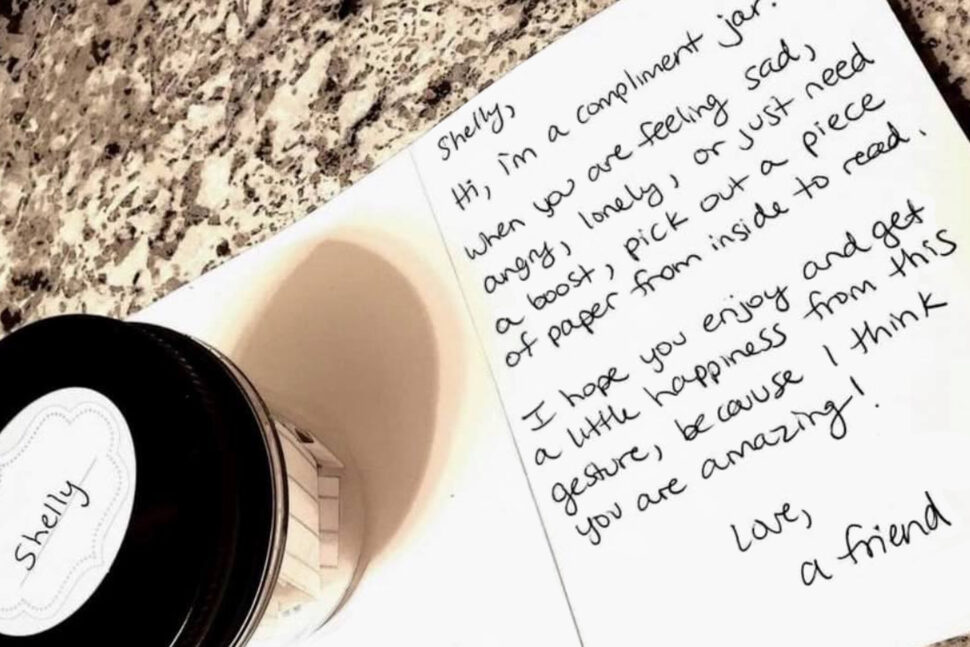 Shelly,
Hi, i'm a compliment jar.
when you are feeling sad,
angry, lonely, or just need
a boost, pick out a piece
of paper from inside to read.
I hope you enjoy and get
a little happiness from this
gesture, because I think
you are amazing!
Love,
a friend
Shelly